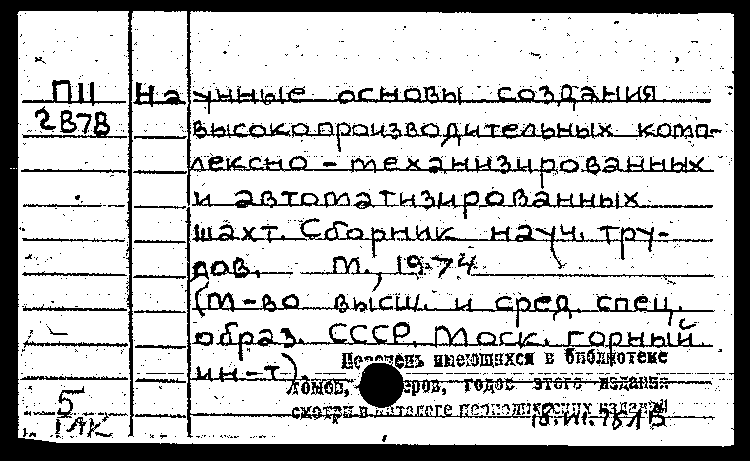 П11 Научные основы создания
2В7В высокопроизводительных комп-
лексно-механизированных
и автоматизированных
шахт. Сборник науч. тру-
дов. М., 1974
(М-во высш. и сред. спец.
образ. СССР. Моск. горный
ин-т).
Перечень имеющихся в библиотеке
томов, номеров, годов этого издания
смотри в каталоге периодических изданий
5